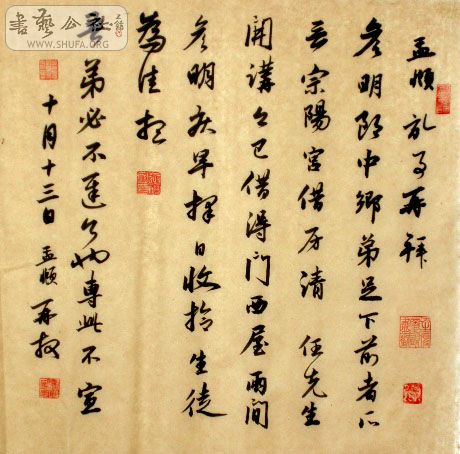 書藝公社
WWW.SHUFA.ORG
孟頫記事再拜
彥明郎中鄉弟足下前者所
言宗陽宮借房請 任先生
開講今已借得門西屋兩間
彥明疾早擇日收拾生徒
為佳想
吾弟必不遲了也專此不宣
十月十三日 孟頫再拜